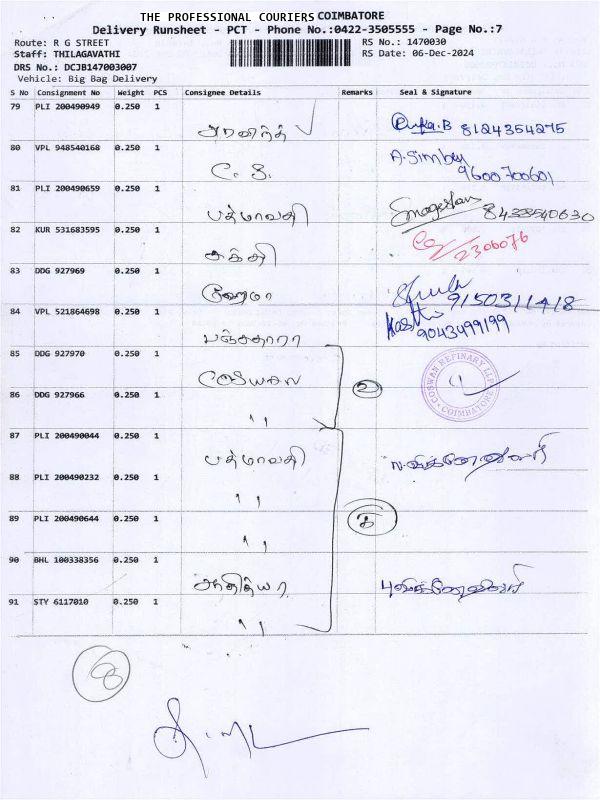 THE PROFESSIONAL COURIERS COIMBATORE
Delivery Runsheet - PCT - Phone No.:0422-3505555 - Page No.:7
Route: R G STREET
RS No.: 1470030
Staff: THILAGAVATHI
RS Date: 06-Dec-2024
DRS No.: DCJB147003007
Vehicle: Big Bag Delivery
S No Consignment No Weight PCS Consignee Details Remarks Seal & Signature
79 PLI 200490949 0.250 1 அரவிந்த் 8124354275
80 VPL 948540168 0.250 1 C. S. 9600700601
81 PLI 200490659 0.250 1 பத்மாவதி 8438540630
82 KUR 531683595 0.250 1 சக்தி 2306076
83 DDG 927969 0.250 1 ஹேமா 9150311418
84 VPL 521864698 0.250 1 பஞ்சதாரா 9043499199
85 DDG 927970 0.250 1
COSWAN REFINARY LLP
COIMBATORE
86 DDG 927966 0.250 1 " 2
87 PLI 200490044 0.250 1 பத்மாவதி
88 PLI 200490232 0.250 1 "
89 PLI 200490644 0.250 1 "
90 BHL 100338356 0.250 1 ஆதித்யா
91 STY 6117010 0.250 1 "